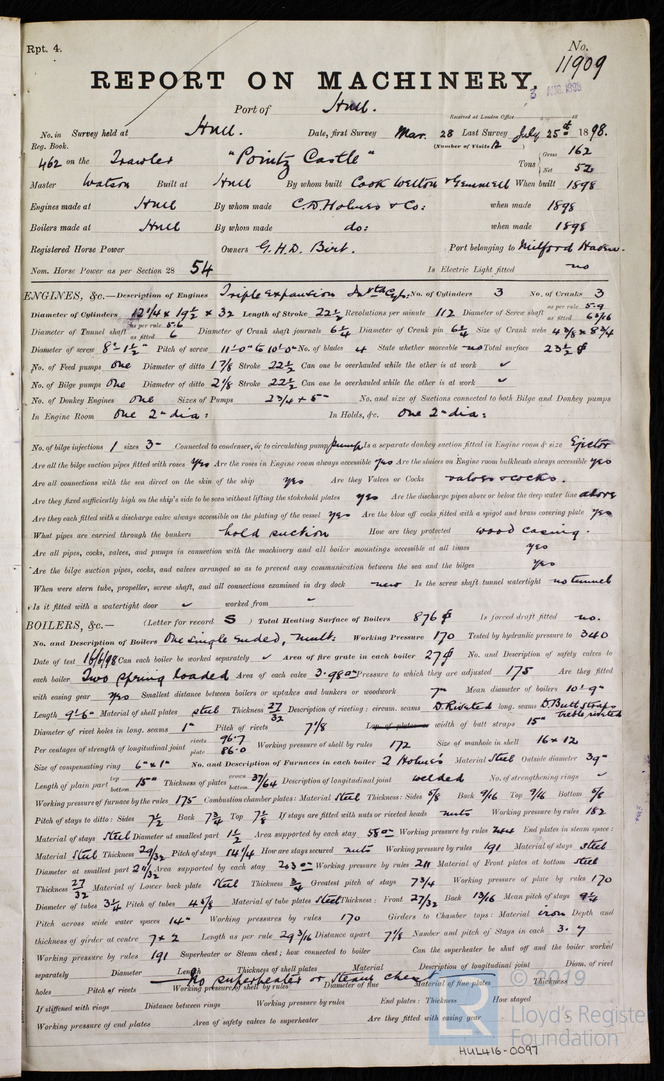 Rpt. 4.
No. 11909
REPORT ON MACHINERY.
Port of Hull.
Received at London Office
No. in Survey held at Hull. Date, first Survey Mar. 28 Last Survey July 25th 1898.
Reg. Book. (Number of Visits 12)
462 on the Trawler "Pointz Castle" Tons Gross 162 Net 52
Master Watson Built at Hull By whom built Cook Welton & Gemmell When built 1898
Engines made at Hull By whom made C.D. Holmes & Co: when made 1898
Boilers made at Hull By whom made do: when made 1898
Registered Horse Power Owners G.H.D. Birt. Port belonging to Milford Haven.
Nom. Horse Power as per Section 28 54 Is Electric Light fitted no
ENGINES, &c.—Description of Engines Triple Expansion No. of Cylinders 3 No. of Cranks 3
Diameter of Cylinders 12 1/4 x 19 1/2 x 32 Length of Stroke 22 1/2 Revolutions per minute 112 Diameter of Screw shaft as per rule 5.9 as fitted
Diameter of Tunnel shaft as per rule 5.6 as fitted 6 Diameter of Crank shaft journals 6 1/4 Diameter of Crank pin 6 1/4 Size of Crank webs 4 3/8 x 8 3/4
Diameter of screw 8'-1 1/2" Pitch of screw 11'-0" to 10'-0" No. of blades 4 State whether moveable no Total surface 23 1/2
No. of Feed pumps one Diameter of ditto 1 7/8 Stroke 22 1/2 Can one be overhauled while the other is at work ✓
No. of Bilge pumps One Diameter of ditto 2 1/8 Stroke 22 1/2 Can one be overhauled while the other is at work ✓
No. of Donkey Engines One Sizes of Pumps 2 3/4 x 5" No. and size of Suctions connected to both Bilge and Donkey pumps
In Engine Room One 2" dia: In Holds, &c. One 2" dia:
No. of bilge injections 1 sizes 3" Connected to condenser, or to circulating pump pump Is a separate donkey suction fitted in Engine room & size Ejector
Are all the bilge suction pipes fitted with roses yes Are the roses in Engine room always accessible yes Are the sluices on Engine room bulkheads always accessible yes
Are all connections with the sea direct on the skin of the ship yes Are they Valves or Cocks valves & cocks.
Are they fixed sufficiently high on the ship's side to be seen without lifting the stokehold plates yes Are the discharge pipes above or below the deep water line above
Are they each fitted with a discharge valve always accessible on the plating of the vessel yes Are the blow off cocks fitted with a spigot and brass covering plate yes
What pipes are carried through the bunkers hold suction How are they protected wood casing.
Are all pipes, cocks, valves, and pumps in connection with the machinery and all boiler mountings accessible at all times yes
Are the bilge suction pipes, cocks, and valves arranged so as to prevent any communication between the sea and the bilges yes
When were stern tube, propeller, screw shaft, and all connections examined in dry dock new Is the screw shaft tunnel watertight no tunnel
Is it fitted with a watertight door ✓ worked from ✓
BOILERS, &c.— (Letter for record S) Total Heating Surface of Boilers 876 Is forced draft fitted no.
No. and Description of Boilers One single ended, mult: Working Pressure 170 Tested by hydraulic pressure to 340
Date of test 16/6/98 Can each boiler be worked separately ✓ Area of fire grate in each boiler 27 No. and Description of safety valves to
each boiler Two spring loaded Area of each valve 3.98 Pressure to which they are adjusted 175 Are they fitted
with easing gear yes Smallest distance between boilers or uptakes and bunkers or woodwork 7" Mean diameter of boilers 10'-9"
Length 9'-6" Material of shell plates steel Thickness 27/32 Description of riveting: circum. seams D. Riveted long. seams D. Butt straps treble riveted
Diameter of rivet holes in long. seams 1" Pitch of rivets 7 1/8 Lap of plates or width of butt straps 15"
Per centages of strength of longitudinal joint rivets 96.7 plate 86.0 Working pressure of shell by rules 172 Size of manhole in shell 16 x 12
Size of compensating ring 6" x 1" No. and Description of Furnaces in each boiler 2 Holmes Material Steel Outside diameter 39"
Length of plain part top bottom 15" Thickness of plates crown bottom 37/64 Description of longitudinal joint welded No. of strengthening rings ✓
Working pressure of furnace by the rules 175 Combustion chamber plates: Material Steel Thickness: Sides 5/8 Back 9/16 Top 9/16 Bottom 5/8
Pitch of stays to ditto: Sides 7 1/2 Back 7 3/4 Top 7 1/8 If stays are fitted with nuts or riveted heads nuts Working pressure by rules 182
Material of stays Steel Diameter at smallest part 1 1/2 Area supported by each stay 58 Working pressure by rules 244 End plates in steam space:
Material Steel Thickness 29/32 Pitch of stays How are stays secured nuts Working pressure by rules 191 Material of stays steel
Diameter at smallest part Area supported by each stay 203 Working pressure by rules 211 Material of Front plates at bottom steel
Thickness 27/32 Material of Lower back plate Steel Thickness 3/4 Greatest pitch of stays 7 3/4 Working pressure of plate by rules 170
Diameter of tubes 3 1/4 Pitch of tubes 4 5/8 Material of tube plates Steel Thickness: Front 27/32 Back 13/16 Mean pitch of stays 9 1/4
Pitch across wide water spaces 14" Working pressures by rules 170 Girders to Chamber tops: Material iron Depth and
thickness of girder at centre 7 x 2 Length as per rule 29 3/16 Distance apart 7 1/8 Number and pitch of Stays in each 3. 7
Working pressure by rules 191 Superheater or Steam chest; how connected to boiler Can the superheater be shut off and the boiler worked
separately Diameter Length Thickness of shell plates Material Description of longitudinal joint Diam. of rivet
No superheater or Steam chest
holes Pitch of rivets Working pressure of shell by rules Diameter of flue Material of flue plates Thickness
If stiffened with rings Distance between rings Working pressure by rules End plates: Thickness How stayed
Working pressure of end plates Area of safety valves to superheater Are they fitted with easing gear
© 2019
Lloyd's Register
Foundation
HUL416-0097